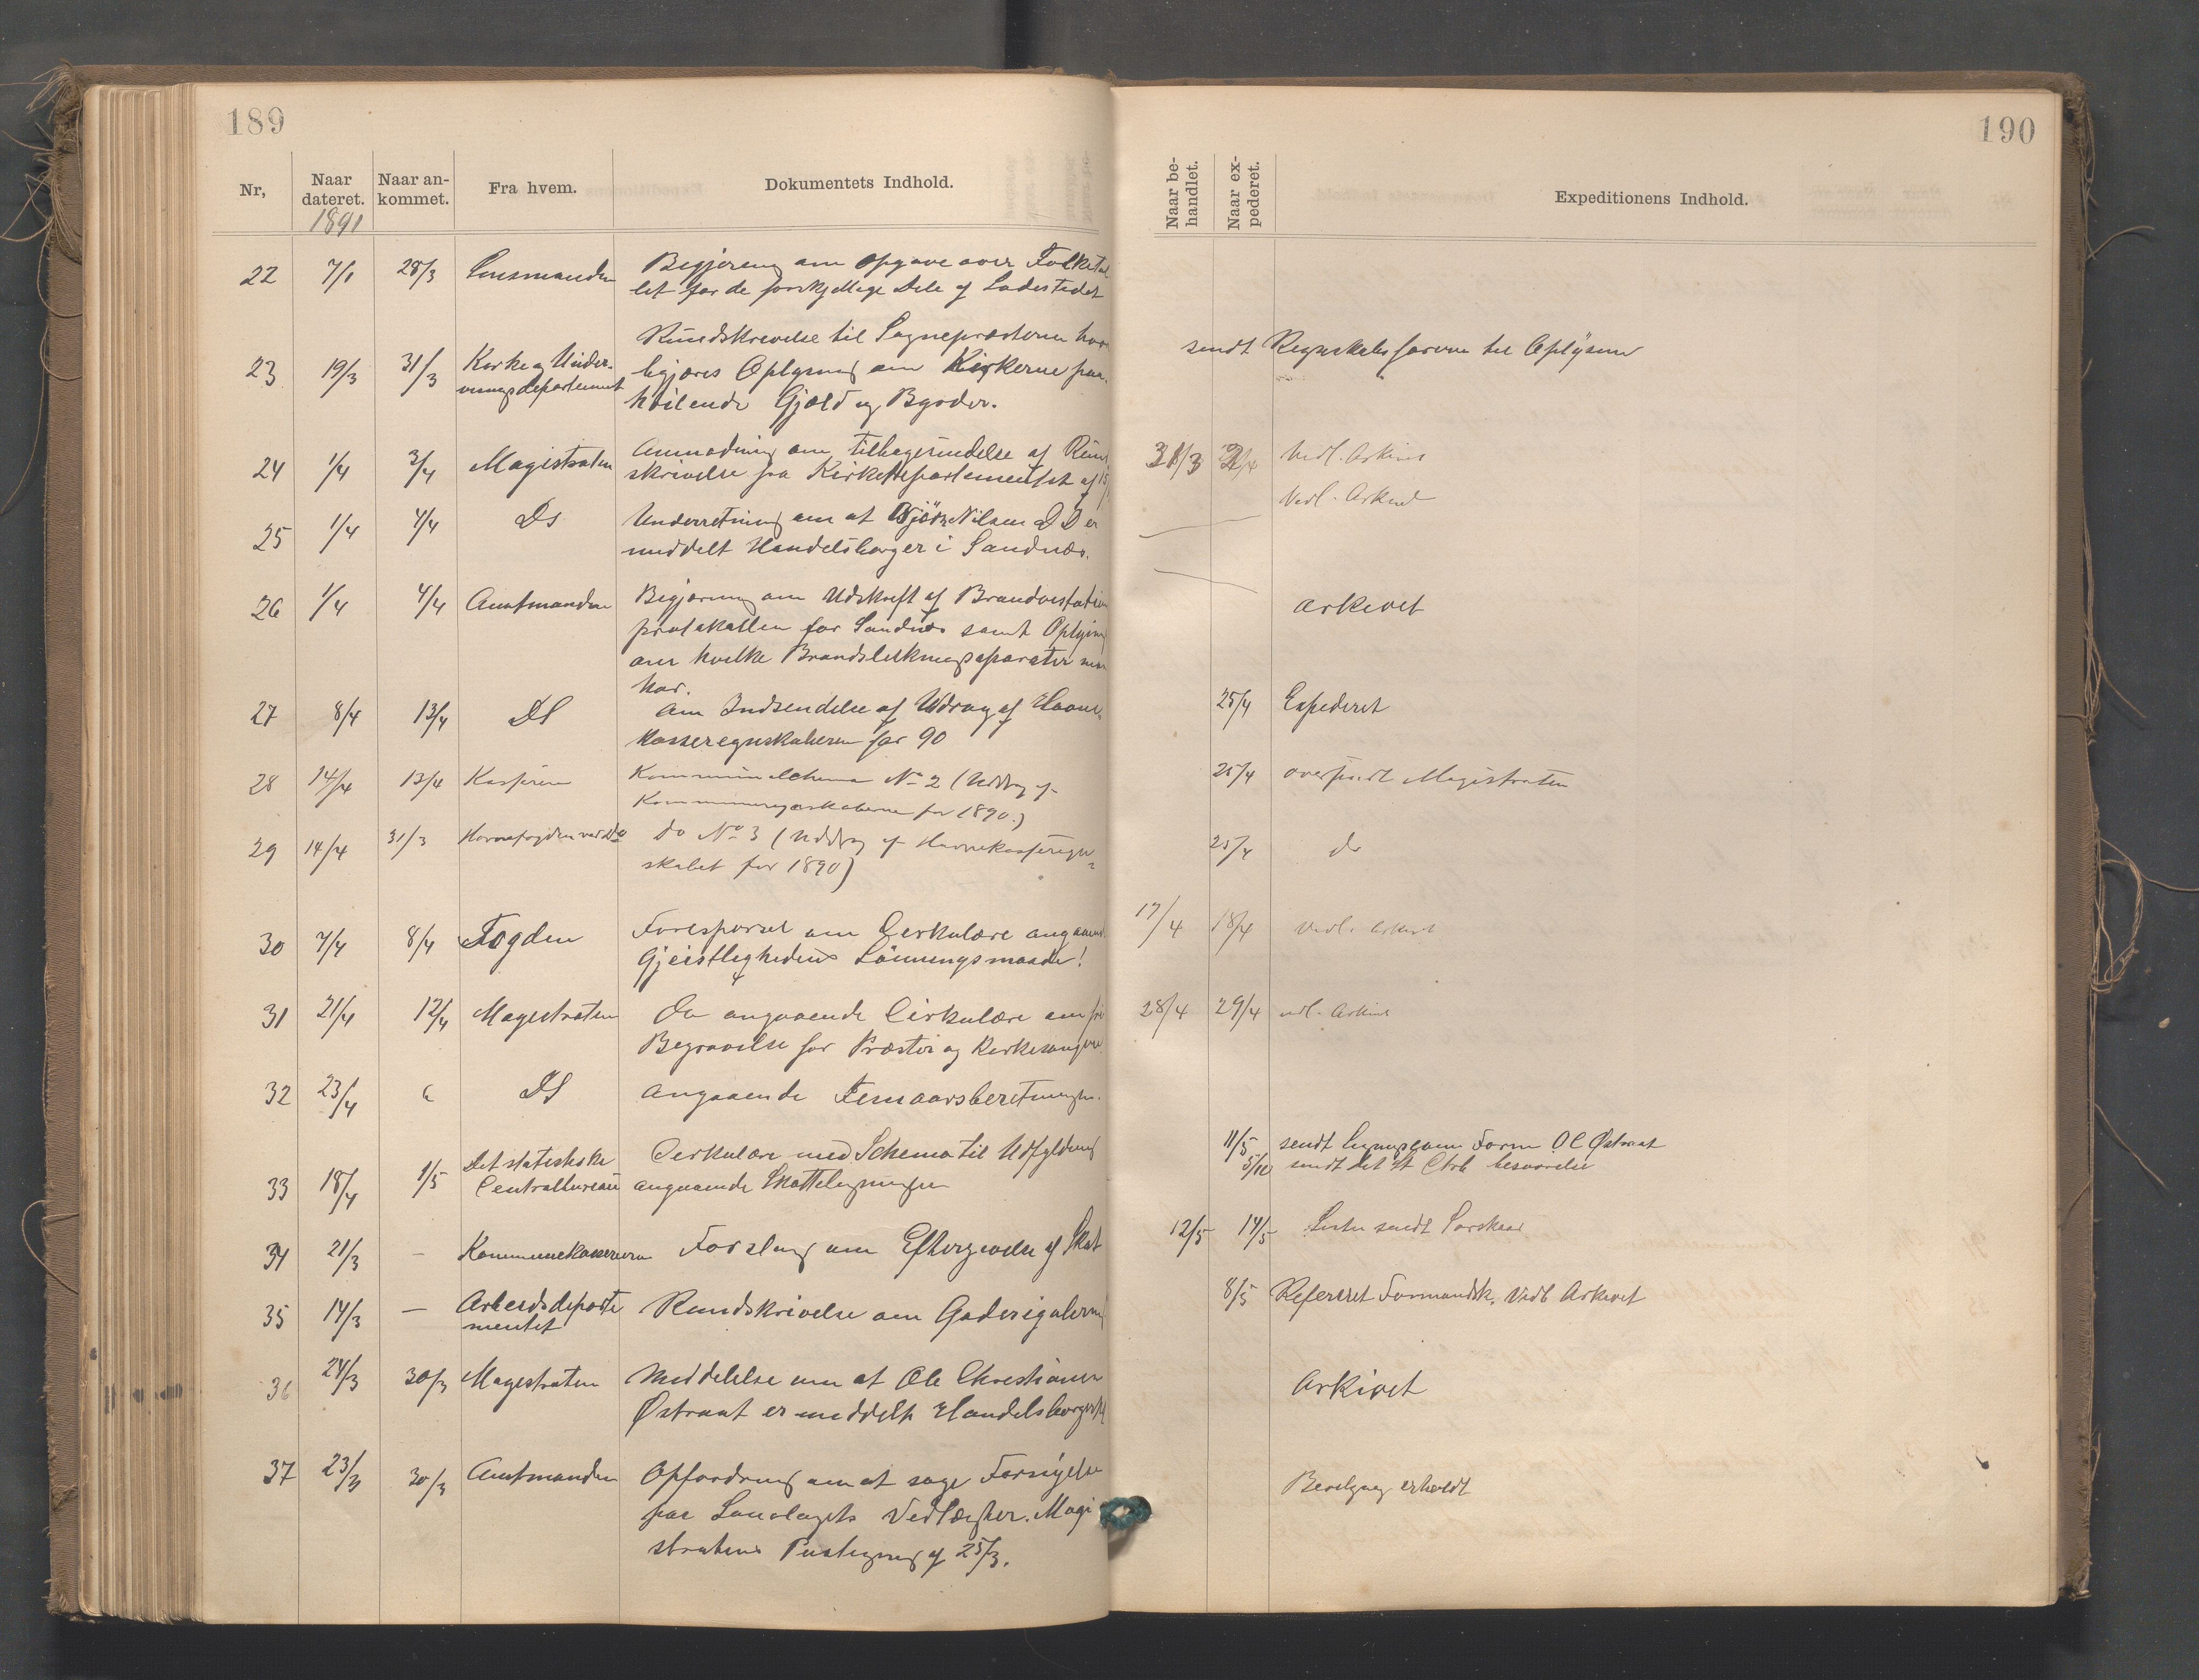 189
Nr,
Naar dateret.
Naar an-kommet.
Fra hvem.
Dokumentets Indhold.
1891
22 7/1 28/3 Lensmanden Begjæring om Opgave over Folketal
let for de forskjellige Dele af Ladestedet
23 19/3 31/3 Kirke og Under-
visningsdepartement
Rundskrivelse til Sognepræsterne hvor
begjæres Oplysning om Kirkerne paa-
hvilende Gjæld og Byrder.
24 1/4 3/4 Magistraten Anmodning om tilbagesendelse af Rund
skrivelse fra Kirkedepartementet af
25 1/4 4/4 Ds Underretning om at Nilsen D D er
meddelt Handelsborger i Sandnæs.
26 1/4 4/4 Amtmanden Begjæring om Udskrift af Brandvestation
protokollen for Sandnæs samt Oplysning
om hvilke Brandslukningsaparater man
har.
27 8/4 13/4 DS om Indsendelse af Udrag af Havne-
kasseregnskaberne for 90
28 14/4 13/4 Kasseren Kommuneschema No 2 (Uddrag af
Kommuneregnskaberne for 1890.)
29 14/4 31/3 Havnefogden ved Do Do No 3 (Uddrag af Havnekasseregn=
skabet for 1890)
30 7/4 8/4 Fogden Forespørsel om Cerkulære angaaend
Gjeistlighedens Lönningsmaade!
31 21/4 12/4 Magistraten Do angaaende Cirkulære om fri
Begravelse for Præster og Kirkesangere
32 23/4 " DS Angaaende Femaarsberetningen.
33 18/4 1/5 Det statistiske
Centralbureau
Cerkulære med Schema til Udfyldning
angaaende Skatteligningen
34 21/3 — Kommunekassereren Forslag om Eftergivelse af Skat
35 14/3 — Arbeidsdeparte
mentet
Rundskrivelse om Gaderegulering
36 24/3 30/3 Magistraten Meddelelse om at Ole Christiansen
Østraat er meddelt Handelsborgerskab
37 23/3 30/3 Amtmanden Opfordring om at søge Fornyelse
paa Lavolagets Vedtægter. Magi
stratens Paategning af 25/3.
190
Naar be-handlet.
Naar ex-pederet.
Expeditionens Indhold.
sendt Regnskabsføreren til Oplysning
31/3 2/4 Vedl. Arkivet
Vedl. Arkivet
Arkivet
25/4 Expederet
25/4 oversendt Magistraten
25/4 do
17/4 18/4 Vedl. Arkivet
28/4 29/4 vedl. Arkivet
11/5 sendt Form O C Østraat
5/10 sendt det st Ctrb besvarelse
12/5 14/5 Listen sendt
8/5 Refereret Formandsk. Vedl Arkivet
Arkivet
Bevilgning erholdt